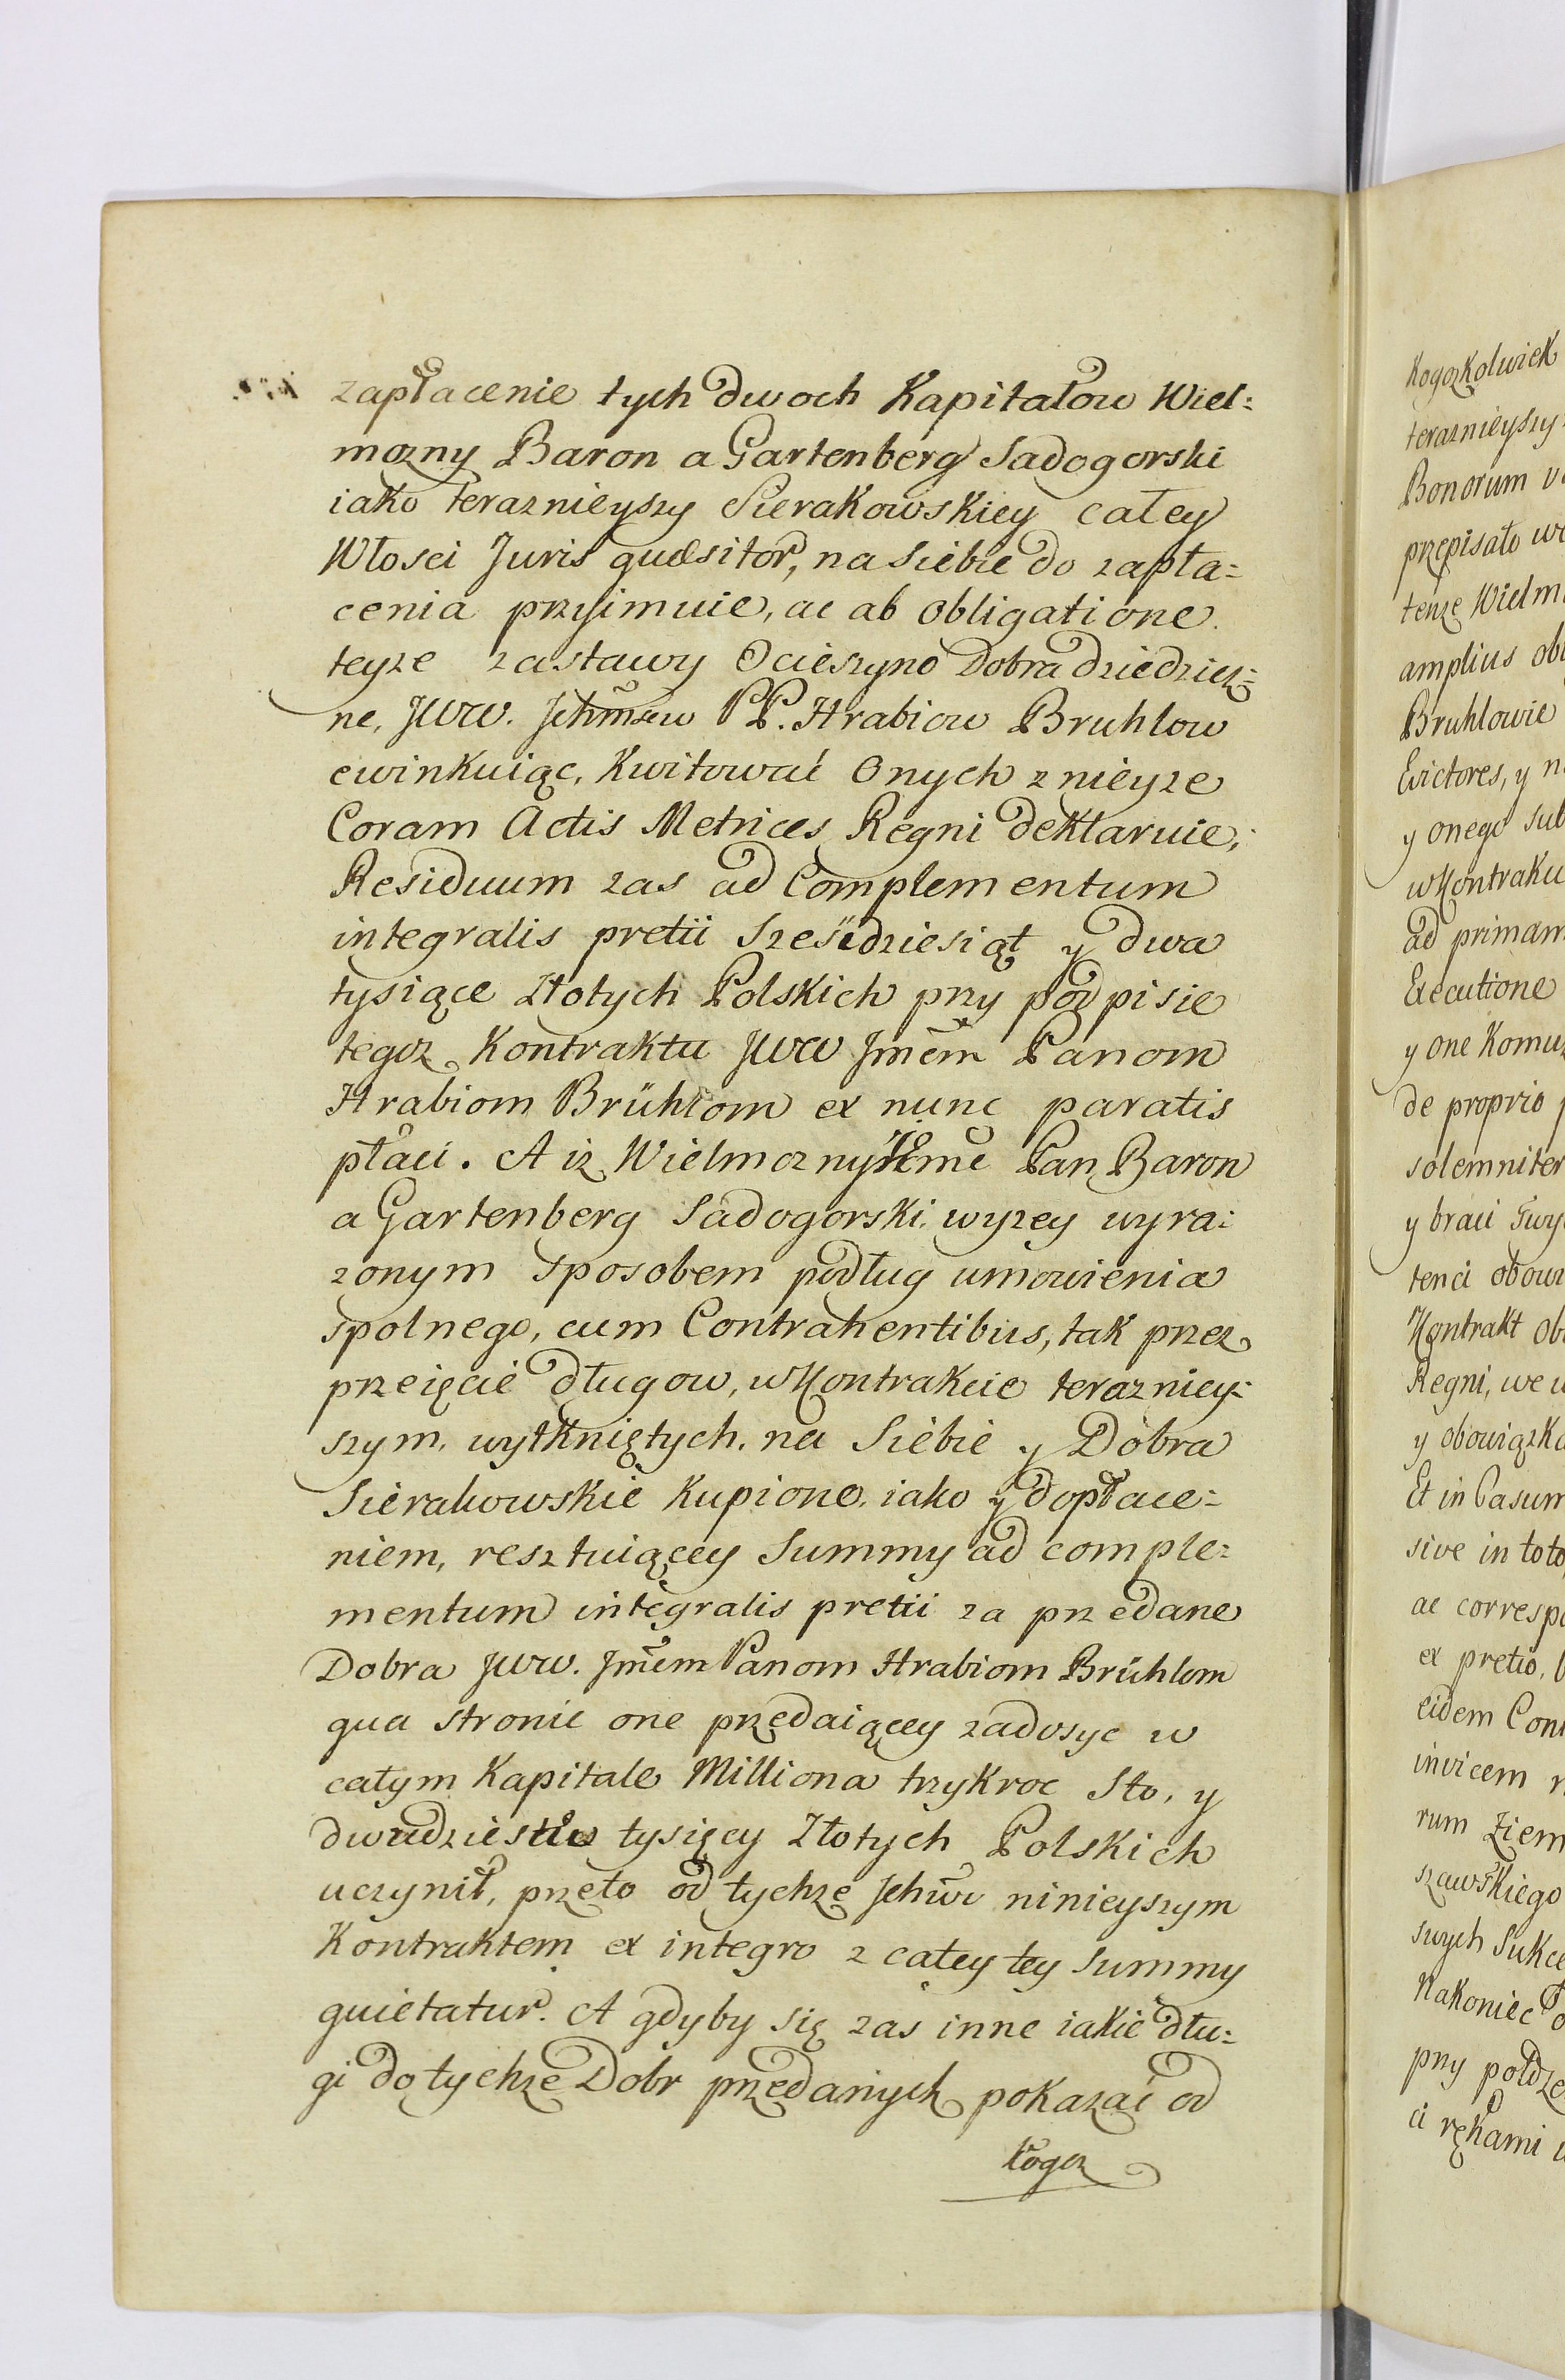 zapłacenie tych dwoch Kapitałow Wiel:
mozny Baron a Gartenberg Sadogorski
iako teraznieyszy Sierakowskiey całey
Włosci Juris quæsitor, na siebie do zapła:
cenia przyimuie, ac ab obligatione
teyze zastawy Ocieszyno Dobra dziedzicz:
ne, JWW. Jchmsćw PP. Hrabiow Bruhlow
ewinkuiąc, Kwitować Onych z nieyze
Coram Actis Metrices Regni deklaruie,
Residuum zas ad Complementum
integralis pretii Sześćdziesiąt y dwa
tysiące Złotych Polskich przy podpisie
tegoz Kontraktu JWW Jmćm Panom
Hrabiom Brühlom ex nunc paratis
płaci. A iz Wielmozny Jmć Pan Baron
a Gartenberg Sadogorski wyzey wyra:
zonym sposobem podług umowienia
spolnego, cum Contrahentibus, tak przez
przeięcie długow, w Kontrakcie terazniey:
szym, wytkniętych, na Siebie y Dobra
Sierakowskie Kupione, iako y dopłace:
niem, resztuiącey Summy ad comple:
mentum integralis pretii za przedane
Dobra JWW. Jmćm Panom Hrabiom Brühlom
qua stronie one przedaiącey zadosyc w
całym Kapitale Milliona trzykroc Sto, y
dwudziestu tysięcy Złotych Polskich
uczynił, przeto od tychze Jchmć ninieyszym
Kontraktem ex integro z całey tey Summy
quietatur. A gdyby się zas inne iakie dłu:
gi do tychze Dobr przedanych pokazać od
kogoz
Kogozkolwiek
teraznieyszy
Bonorum
przepisało
tenze Wielm
amplius
Bruhlowie
Evictores, y
y onego
w Kontrakci
ad primam
Executione
y one Komu
de proprio
solemniter
y braci
tenci
Kontrakt
Regni, we
y obowiązk
Et in Casum
sive in toto
ac corresp
ex pretio,
eidem Con
invicem
rum Ziem
szawskiego
swych Sukce
Nakoniec
przy
ci rękami